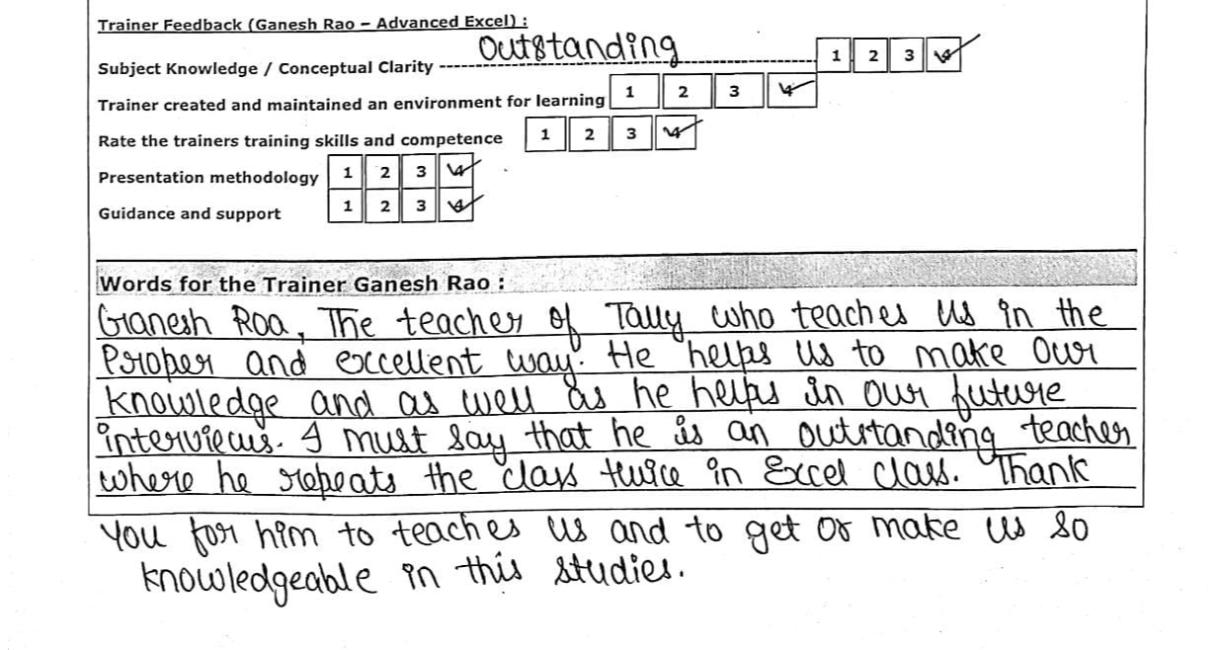 Trainer Feedback (Ganesh Rao – Advanced Excel) :
Outstanding
Subject Knowledge / Conceptual Clarity ---------------------------------------- 1 2 3 4
Trainer created and maintained an environment for learning 1 2 3 4
Rate the trainers training skills and competence 1 2 3 4
Presentation methodology 1 2 3 4
Guidance and support 1 2 3 4
Words for the Trainer Ganesh Rao :
Ganesh Roa, The teacher of Tally who teaches us in the
Proper and excellent way. He helps us to make our
knowledge and as well as he helps in our future
interviews. I must say that he is an outstanding teacher
where he repeats the class twice in Excel class. Thank
You for him to teaches us and to get or make us so
knowledgeable in this studies.